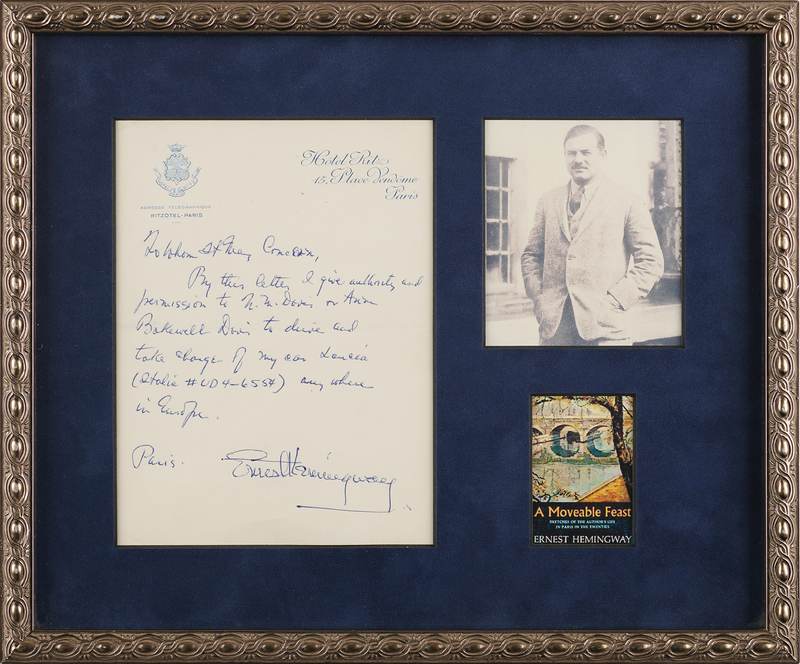 Hôtel Ritz
15, Place Vendôme
Paris
ADRESSE TELEGRAPHIQUE
RITZOTEL-PARIS
To Whom It May Concern,
By this letter I give authority and
permission to N. M. Davis or Ann
Bakewell Davis to drive and
take charge of my car Lancia
(Italia # UD4-6554) any where
in Europe.
Paris.
Ernest Hemingway
A Moveable Feast
SKETCHES OF THE AUTHOR'S LIFE
IN PARIS IN THE TWENTIES
ERNEST HEMINGWAY